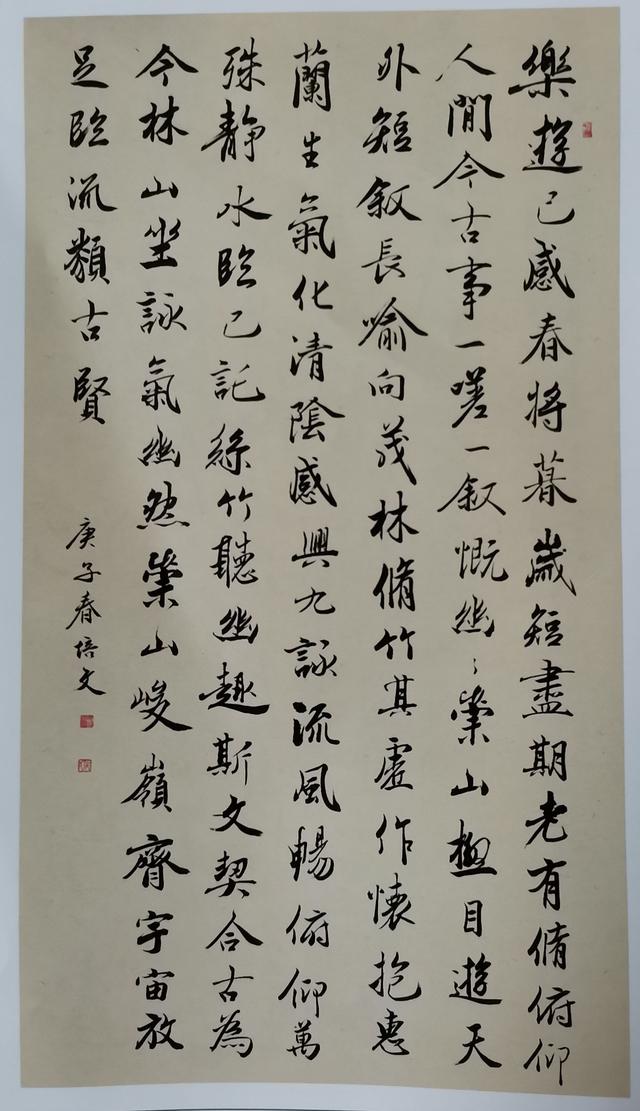 樂遊已感春將暮歲短盡期老有脩俯仰
人間今古事一嗟一叙慨幽〻崇山極目遊天
外短叙長喻向茂林脩竹其虛作懷抱惠
蘭生氣化清陰感興九詠流風暢俯仰萬
殊静水臨己託絲竹聽幽趣斯文契合古為
今林山坐詠氣幽然崇山峻嶺齊宇宙放
足臨流類古賢
庚子春培文